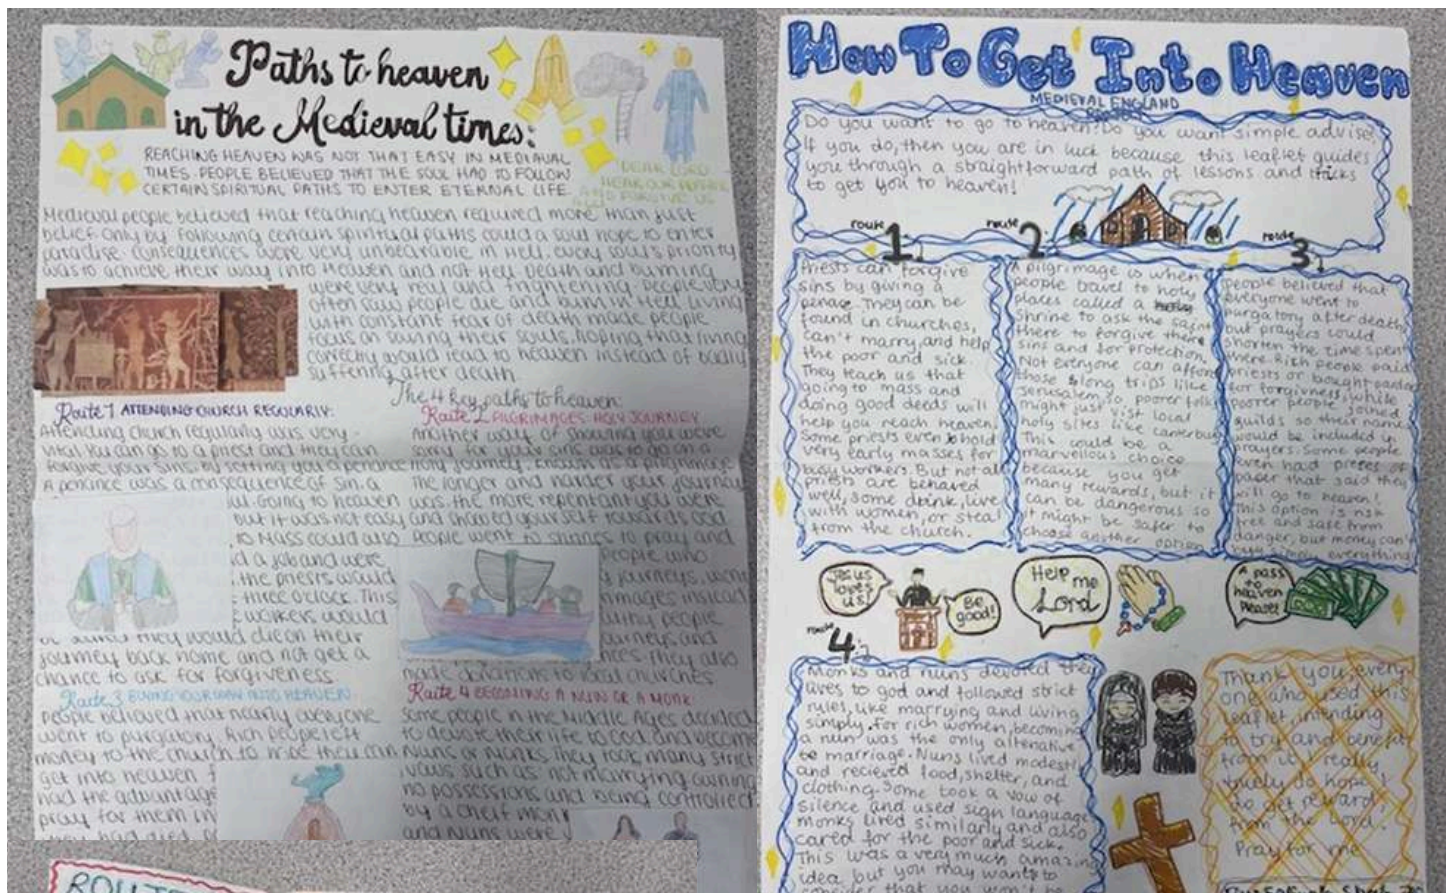 Paths to heaven
in the Medieval times:
REACHING HEAVEN WAS NOT THAT EASY IN MEDIAVAL
TIMES. PEOPLE BELIEVED THAT THE SOUL HAD TO FOLLOW
CERTAIN SPIRITUAL PATHS TO ENTER ETERNAL LIFE.
DEAR LORD
HEAR OUR
AND FORGIVE US
Medieval people believed that reaching heaven required more than just
belief. Only by following certain spiritual paths could a soul hope to enter
paradise. Consequences were very unbearable in Hell. every soul's priority
was to achieve their way into Heaven and not Hell. Death and burning
were very real and frightening. People very
often saw people die and burn in Hell. Living
with constant fear of death made people
focus on saving their souls, hoping that living
correctly would lead to heaven instead of bodily
suffering after death.
The 4 key paths to heaven:
Route 1 ATTENDING CHURCH REGULARLY:
Attending church regularly was very
vital. You can go to a priest and they can
forgive your sins, by setting you a penance
A penance was a consequence of sin. a
Going to heaven
but it was not easy
to Mass could also
d a job and were
the priests would
three o'clock. This
workers would
they would die on their
journey back home and not get a
chance to ask for forgiveness
Route 2 PILGRIMAGES: HOLY JOURNEY
Another way of showing you were
sorry for your sins was to go on a
holy journey, known as a pilgrimage
The longer and harder your journey
was the more repentant you were
and showed yourself towards God
People went to shrines to pray and
people who
journeys, went
images instead
people
journeys and
They also
made donations to local churches
Route 3 BUYING YOUR WAY INTO HEAVEN
People believed that nearly everyone
went to purgatory. Rich people left
money to the church to hope they can
get into heaven
had the advantage
pray for them in
they had died
Route 4 BECOMING A NUN OR A MONK:
Some people in the Middle Ages decided
to devote their life to God and become
Nuns or Monks. They took many strict
vows such as not marrying, owning
no possessions and being controlled
by a chief monk
and Nuns were
ROUTE
How To Get Into Heaven
MEDIEVAL ENGLAND
Do you want to go to heaven? Do you want simple advise?
If you do, then you are in luck because this leaflet guides
you through a straightforward path of lessons and tricks
to get you to heaven!
route 1
Priests can forgive
sins by giving a
penance. They can be
found in churches,
can't marry, and help
the poor and sick.
They teach us that
going to mass and
doing good deeds will
help you reach heaven.
Some priests even hold
very early masses for
busy workers. But not all
priests are behaved
well, some drink, live
with women, or steal
from the church.
route 2
A pilgrimage is when
people travel to holy
places called a
Shrine to ask the saint
there to forgive there
sins and for protection.
Not everyone can afford
those long trips like
Jerusalem, so poorer folk
might just visit local
holy sites like canterbury
This could be a
marvellous choice
because you get
many rewards, but it
can be dangerous so
it might be safer to
choose another option
route 3
People believed that
everyone went to
purgatory after death,
but prayers could
shorten the time spent
there. Rich people paid
priests or bought pardons
for forgivness, while
poorer people joined
guilds so their name
would be included in
prayers. Some people
even had pieces of
paper that said they
will go to heaven!
This option is risk
free and safe from
danger, but money can't
everything
Jesus
loves
us!
Be
good!
Help me
Lord
A pass
to
heaven
please!
route 4
Monks and nuns devoted they
lives to god and followed strict
rules, like marrying and living
simply. For rich women, becoming
a nun was the only altenative
to marriage. Nuns lived modestly
and recieved food, shelter, and
clothing. Some took a vow of
silence and used sign language
monks lived similarly and also
cared for the poor and sick.
This was a very much amazing
idea, but you may want to
consider that you won't be
Thank you, every
one who used this
leaflet, intending
to try and benefit
from it. I really,
truely do hope I
do get reward
from the Lord!
Pray for me